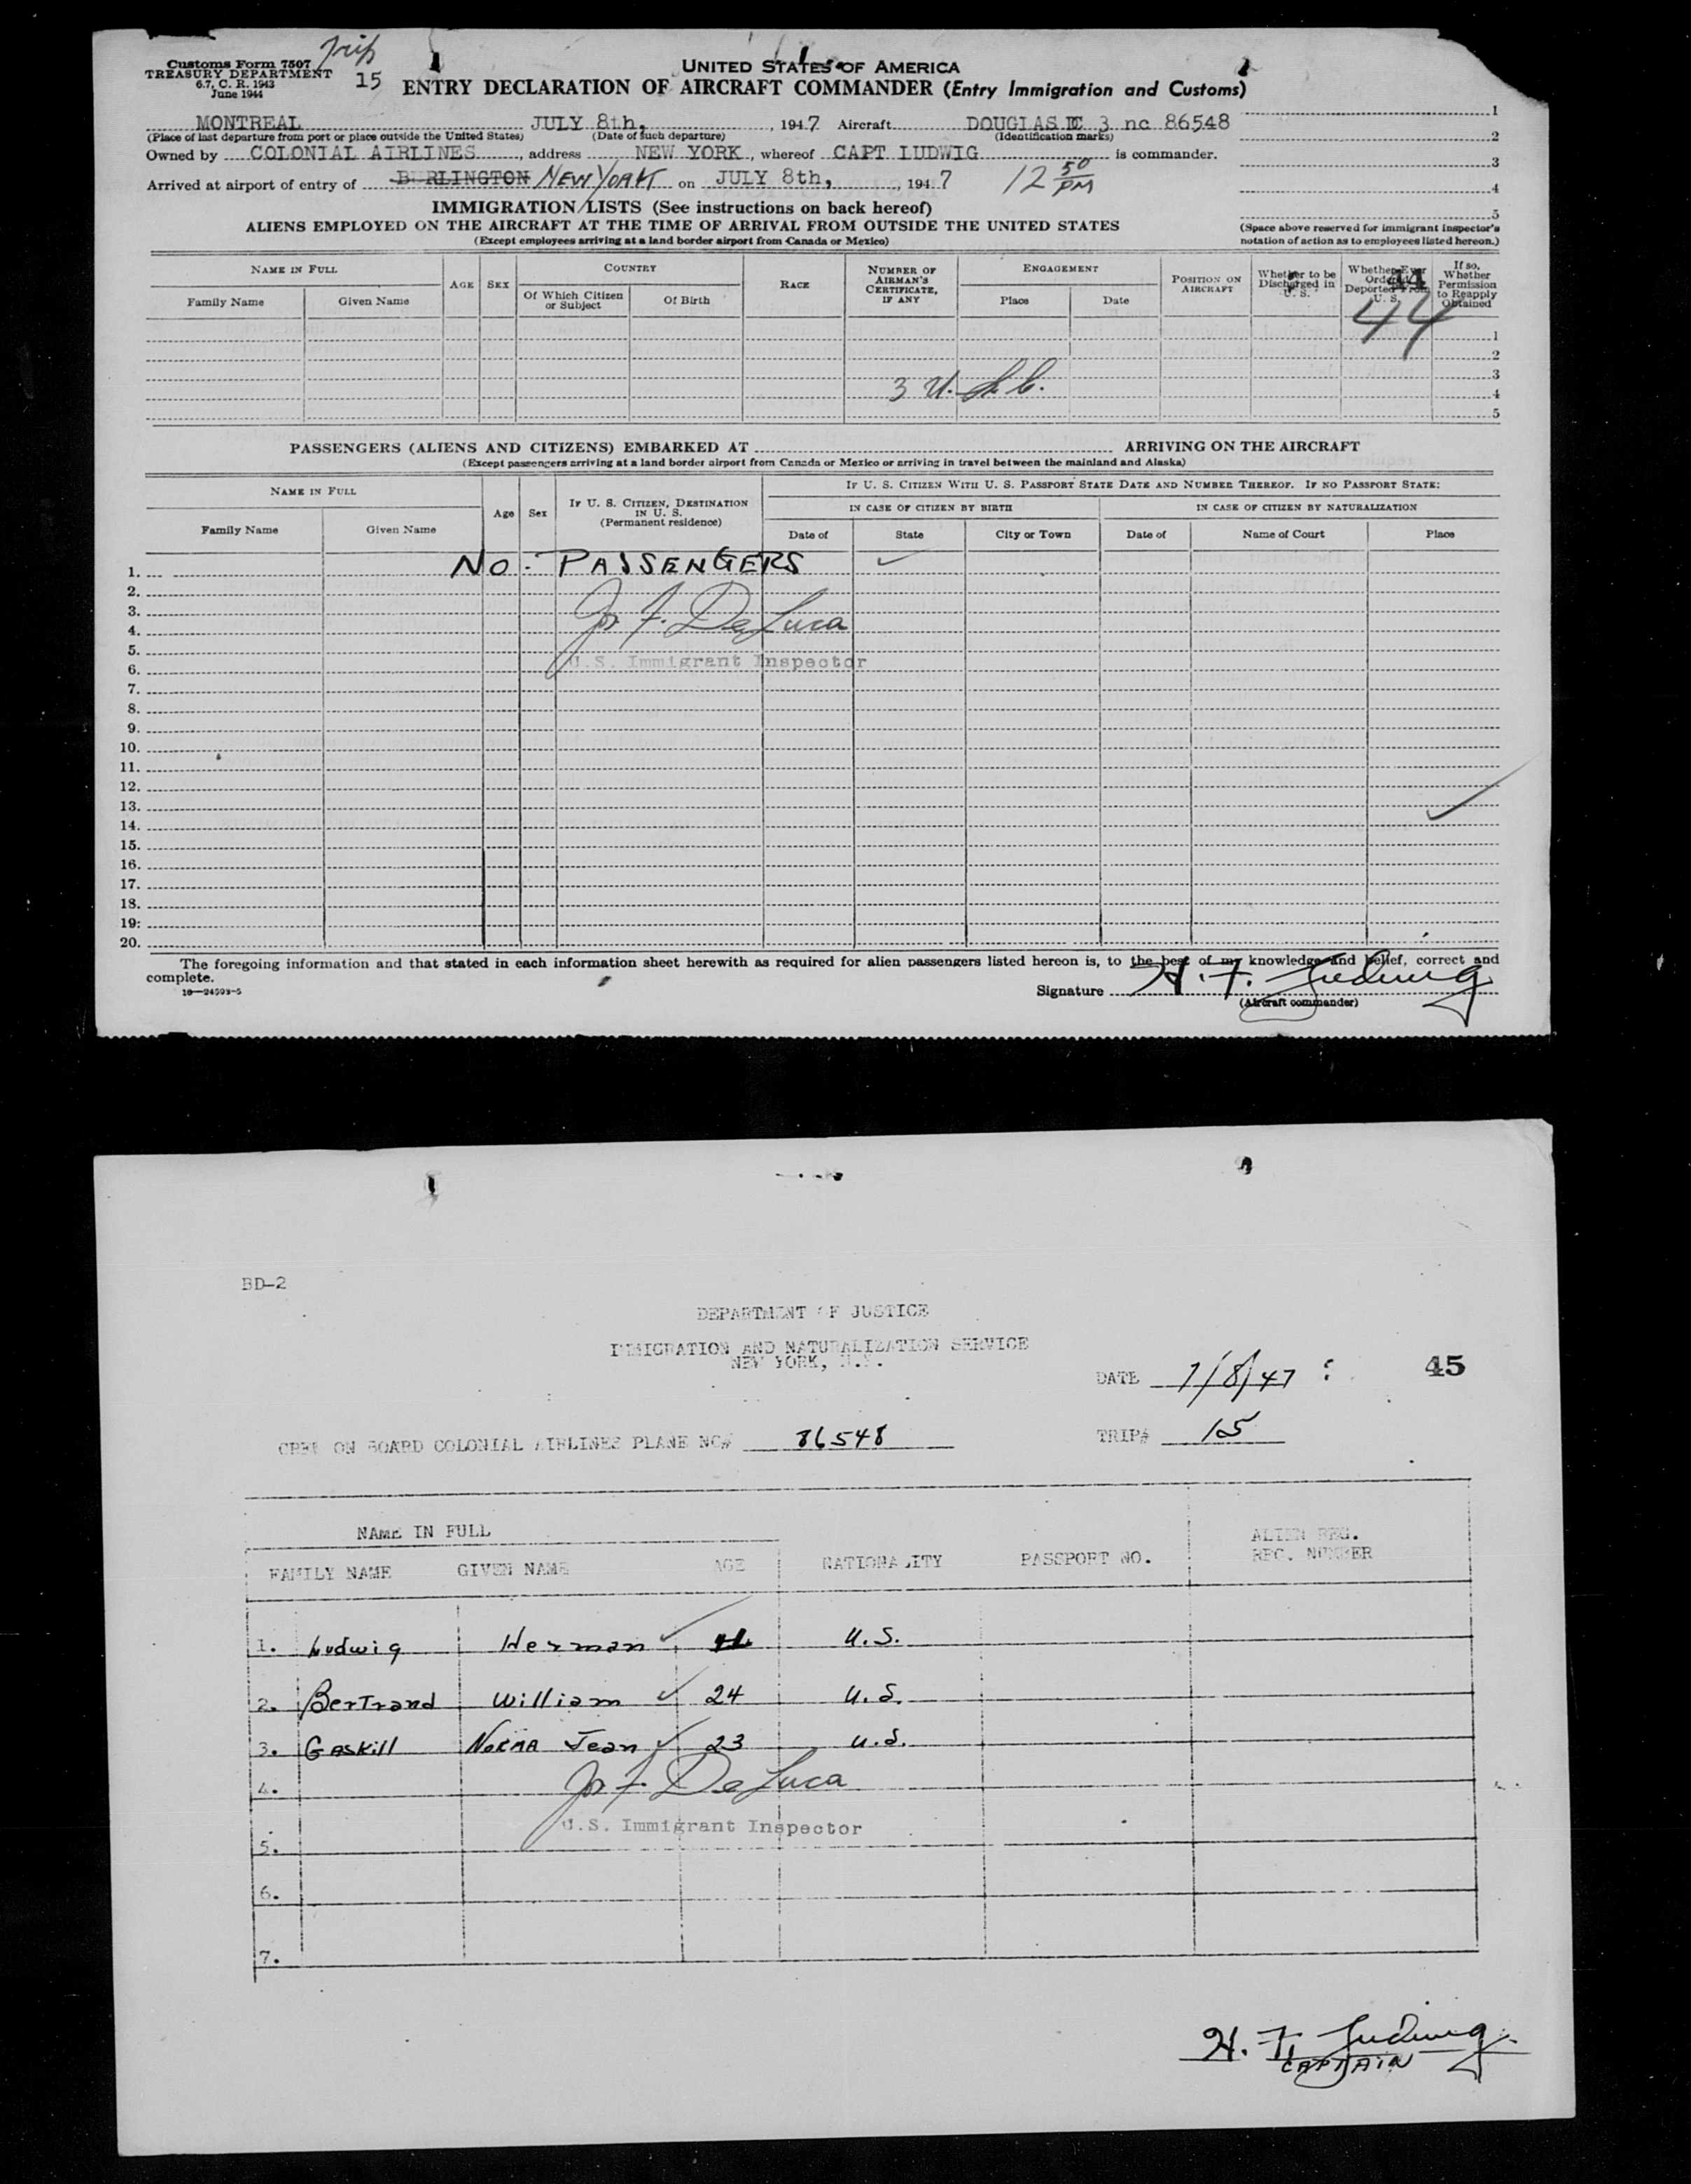 Customs Form 7507
TREASURY DEPARTMENT
6.7, C. R. 1943
June 1944
Trip
15
UNITED STATES OF AMERICA
ENTRY DECLARATION OF AIRCRAFT COMMANDER (Entry Immigration and Customs)
MONTREAL JULY 8th, , 1947 Aircraft DOUGLAS DC 3 nc 86548
(Place of last departure from port or place outside the United States) (Date of such departure) (Identification marks)
Owned by COLONIAL AIRLINES , address NEW YORK , whereof CAPT LUDWIG is commander.
Arrived at airport of entry of BURLINGTON NEW YORK on JULY 8th, , 1947 12 50 PM
1
2
3
4
5
(Space above reserved for immigrant inspector's notation of action as to employees listed hereon.)
IMMIGRATION LISTS (See instructions on back hereof)
ALIENS EMPLOYED ON THE AIRCRAFT AT THE TIME OF ARRIVAL FROM OUTSIDE THE UNITED STATES
(Except employees arriving at a land border airport from Canada or Mexico)
NAME IN FULL
Family Name Given Name
AGE SEX
COUNTRY
Of Which Citizen or Subject Of Birth
RACE
NUMBER OF AIRMAN'S CERTIFICATE, IF ANY
ENGAGEMENT
Place Date
POSITION ON AIRCRAFT
Whether to be Discharged in U. S.
Whether Ever Ordered Deported From U. S.
If so, Whether Permission to Reapply Obtained
44
44
1
2
3
4
5
3 U. S. C.
PASSENGERS (ALIENS AND CITIZENS) EMBARKED AT ARRIVING ON THE AIRCRAFT
(Except passengers arriving at a land border airport from Canada or Mexico or arriving in travel between the mainland and Alaska)
NAME IN FULL
Family Name Given Name
Age Sex
IF U. S. CITIZEN, DESTINATION IN U. S.
(Permanent residence)
IF U. S. CITIZEN WITH U. S. PASSPORT STATE DATE AND NUMBER THEREOF. IF NO PASSPORT STATE:
IN CASE OF CITIZEN BY BIRTH IN CASE OF CITIZEN BY NATURALIZATION
Date of State City or Town Date of Name of Court Place
1. NO - PASSENGERS
2.
3.
4. Jos F. DeLuca
5.
6. U.S. Immigrant Inspector
7.
8.
9.
10.
11.
12.
13.
14.
15.
16.
17.
18.
19.
20.
The foregoing information and that stated in each information sheet herewith as required for alien passengers listed hereon is, to the best of my knowledge and belief, correct and
complete.
Signature H. F. Ludwig
(Aircraft commander)
BD-2
DEPARTMENT OF JUSTICE
IMMIGRATION AND NATURALIZATION SERVICE
NEW YORK, N.Y.
DATE 7/8/47
45
CREW ON BOARD COLONIAL AIRLINES PLANE NC# 86548 TRIP# 15
NAME IN FULL
FAMILY NAME GIVEN NAME AGE NATIONALITY PASSPORT NO. ALIEN REG. REC. NUMBER
1. Ludwig Herman U.S.
2. Bertrand William 24 U.S.
3. Gaskill Norma Jean 23 U.S.
4. Jos F. DeLuca
U.S. Immigrant Inspector
5.
6.
7.
H. F. Ludwig
CAPTAIN